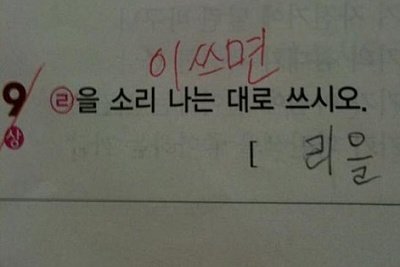 이쓰면
9 ㉣을 소리 나는 대로 쓰시오.
상 [ 리을